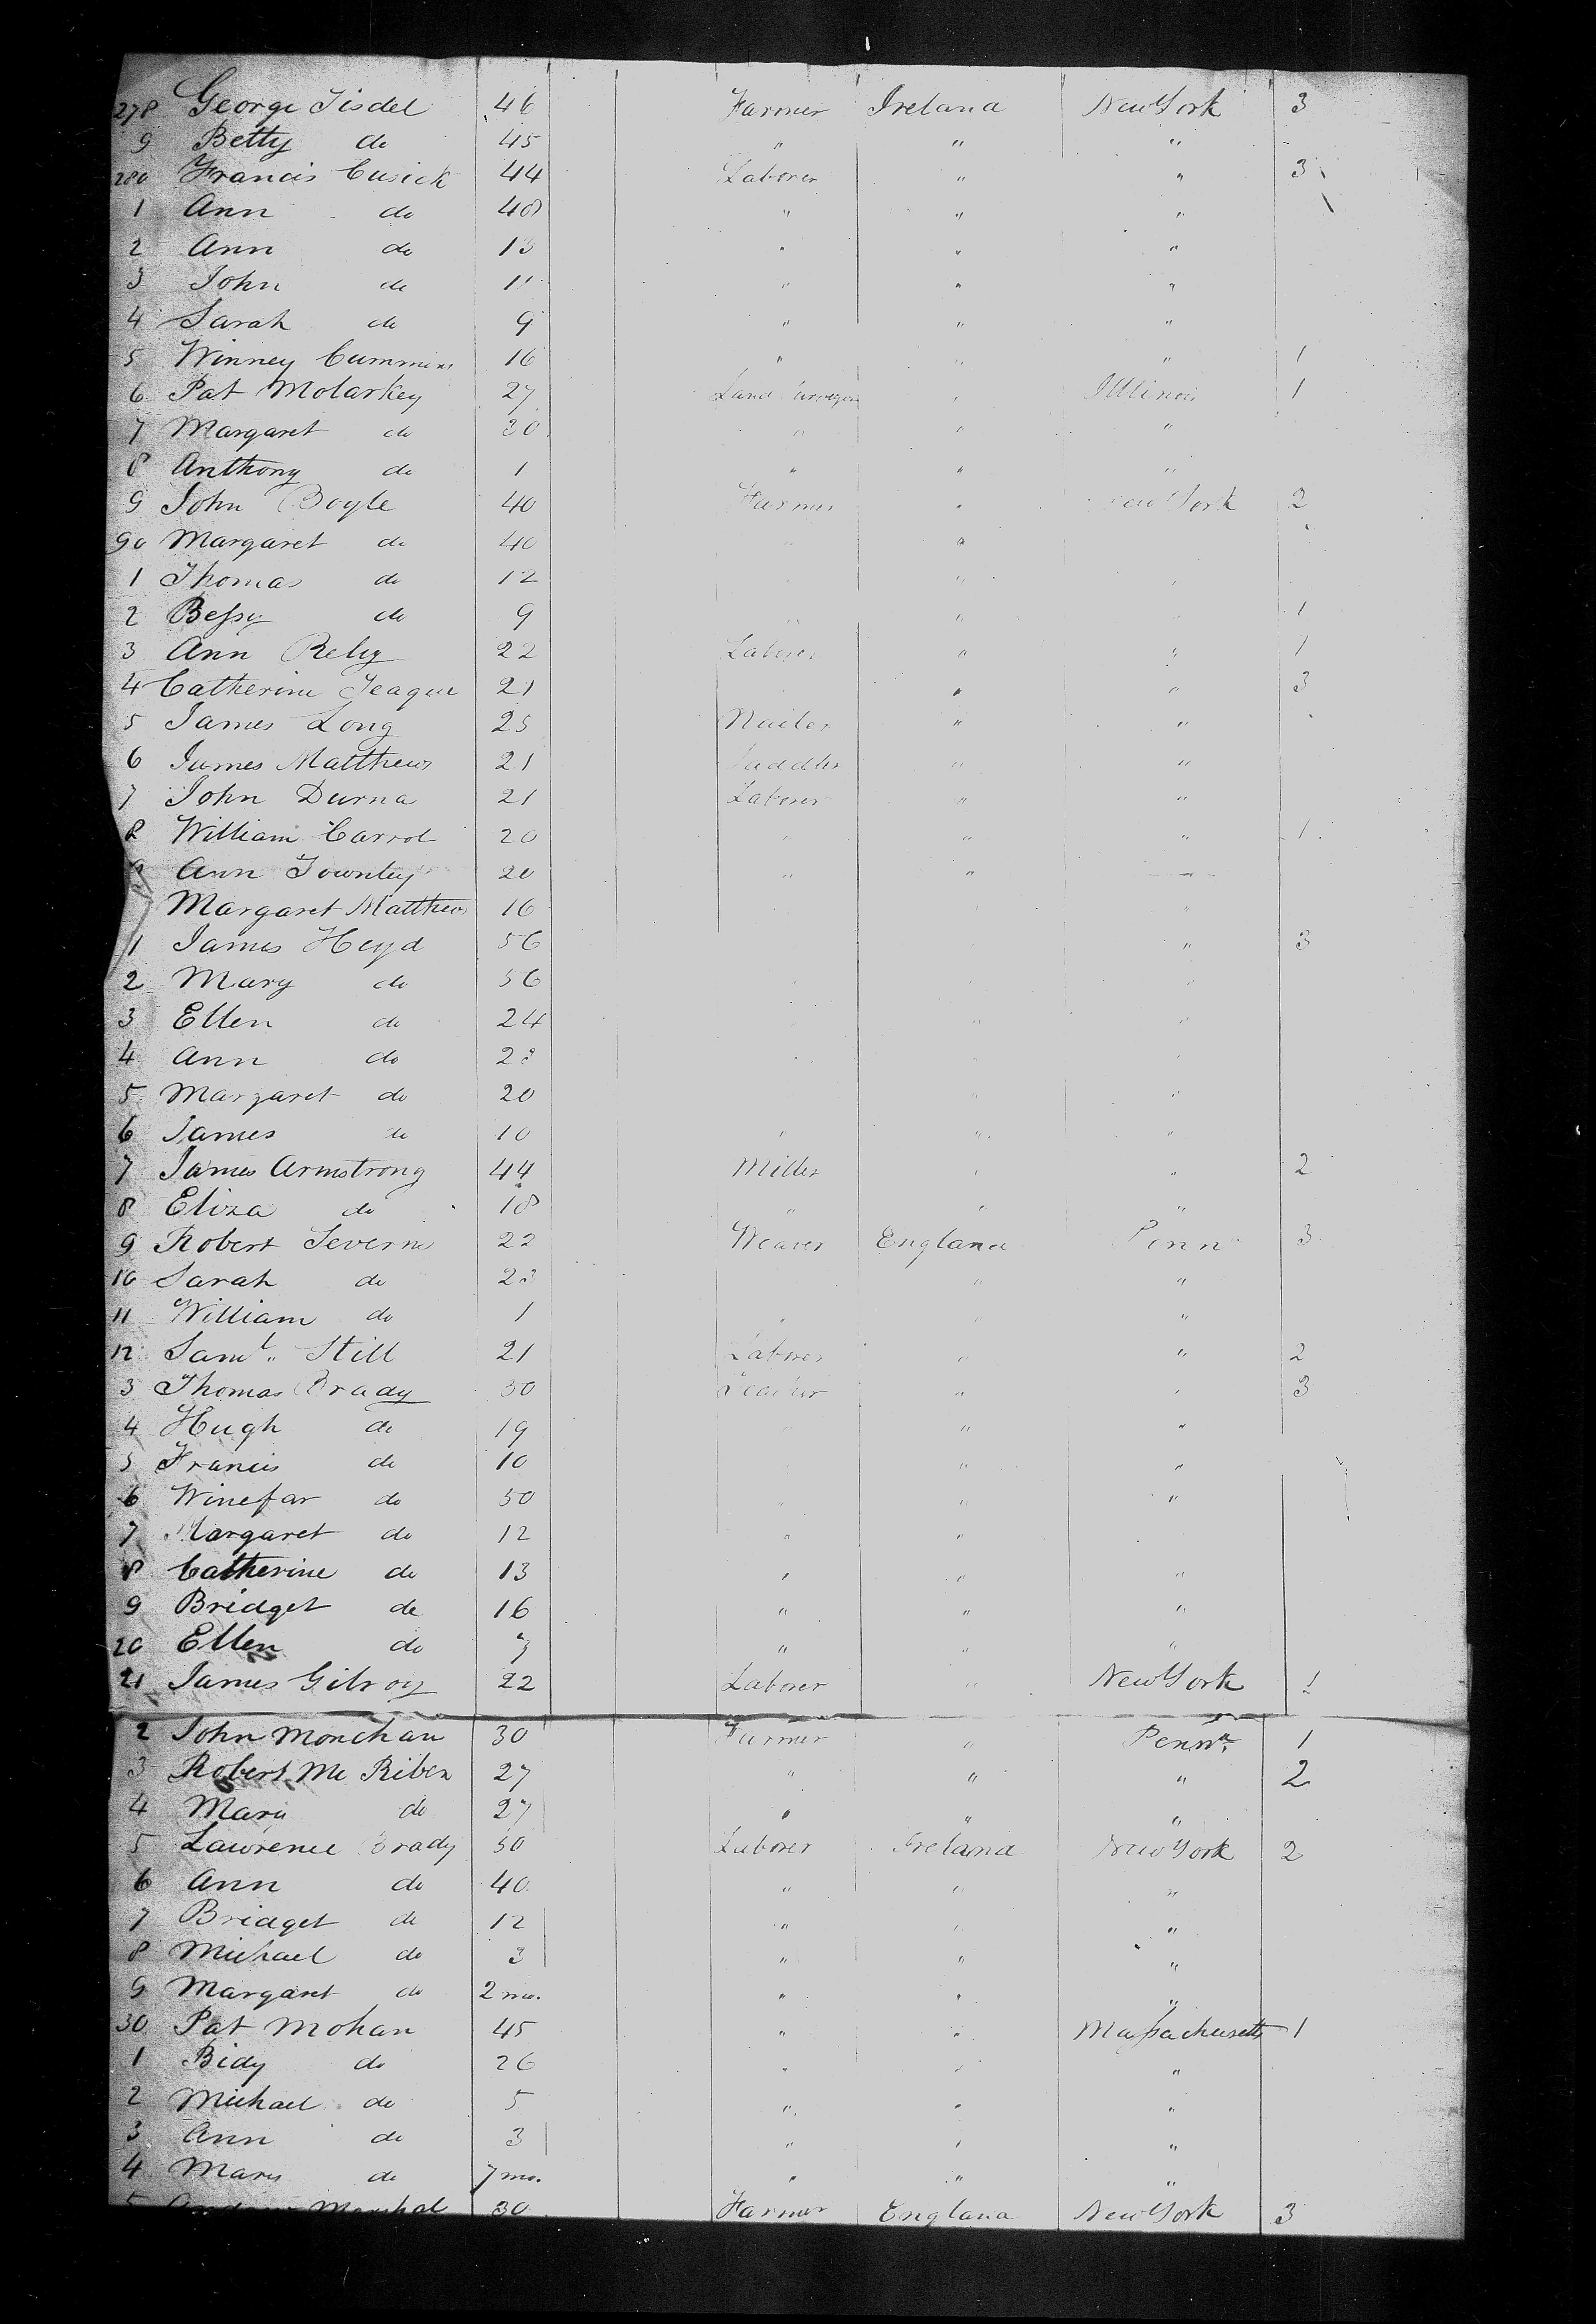 278 George Tisdel 46 Farmer Ireland New York 3
9 Betty do 45 " " "
280 Francis Cusick 44 Laborer " " 3
1 Ann do 48 " " "
2 Ann do 13 " " "
3 John do 11 " " "
4 Sarah do 9 " " "
5 Winney Cummins 16 " " " 1
6 Pat Molarkey 27 Land " Illinois 1
7 Margaret do 30 " " "
8 Anthony do 1 " " "
9 John Boyle 40 Farmer " New York 2
90 Margaret do 40 " "
1 Thomas do 12 " "
2 Bessy do 9 " " " 1
3 Ann Reley 22 Laborer " " 1
4 Catherine Teague 21 " " 3
5 James Long 25 Nailer " "
6 James Matthews 21 Saddler " "
7 John Durna 21 Laborer " "
8 William Carrol 20 " " " 1
9 Ann Townley 20 " " "
Margaret Matthews 16 "
1 James Heyd 56 " 3
2 Mary do 56 "
3 Ellen do 24 " "
4 Ann do 23 "
5 Margaret do 20 " "
6 James do 10 " " "
7 James Armstrong 44 Miller " " 2
8 Eliza do 18 " " "
9 Robert Severn 22 Weaver England Penn 3
10 Sarah do 23 " "
11 William do 1 " " "
12 Saml. Still 21 Laborer " " 2
3 Thomas Brady 30 " " 3
4 Hugh do 19 " "
5 Francis do 10 " "
6 Winefar do 50 " " "
7 Margaret do 12 " "
8 Catherine do 13 " " "
9 Bridget do 16 " " "
20 Ellen do 7 " " "
21 James Gilroy 22 Laborer " New York 1
2 John Monchan 30 Farmer " Penna. 1
3 Robert Mc Riben 27 " " " 2
4 Mary do 27 " " "
5 Lawrence Brady 50 Laborer Ireland New York 2
6 Ann do 40 " " "
7 Bridget do 12 " " "
8 Michael do 3 " " "
9 Margaret do 2 mo. " " "
30 Pat Mohan 45 " " Massachusetts 1
1 Bidy do 26 " " "
2 Michael do 5 " " "
3 Ann do 3 " " "
4 Mary do 7 mo. " " "
5 Marshal 30 Farmer England New York 3